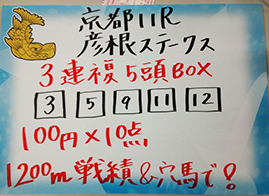 京都11R
彦根ステークス
3連複5頭BOX
3 5 9 11 12
100円×10点
1200m戦績&穴馬で!